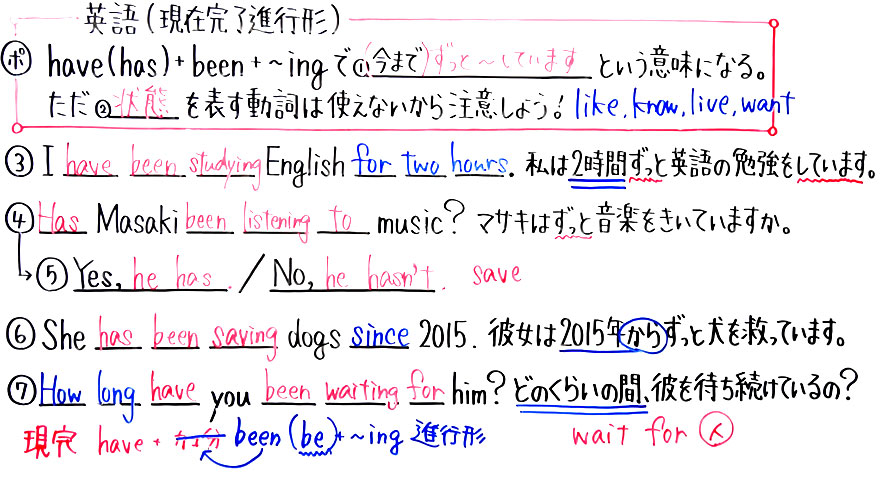 英語(現在完了進行形)
㋭ have(has)+been+~ingで①(今まで)ずっと~しています という意味になる。
ただ②状態を表す動詞は使えないから注意しよう! like, know, live, want
③ I have been studying English for two hours. 私は2時間ずっと英語の勉強をしています。
④ Has Masaki been listening to music? マサキはずっと音楽をきいていますか。
⑤ Yes, he has. / No, he hasn't. save
⑥ She has been saving dogs since 2015. 彼女は2015年からずっと犬を救っています。
⑦ How long have you been waiting for him? どのくらいの間、彼を待ち続けているの?
現完 have + been (be)+~ing 進行形 wait for 人